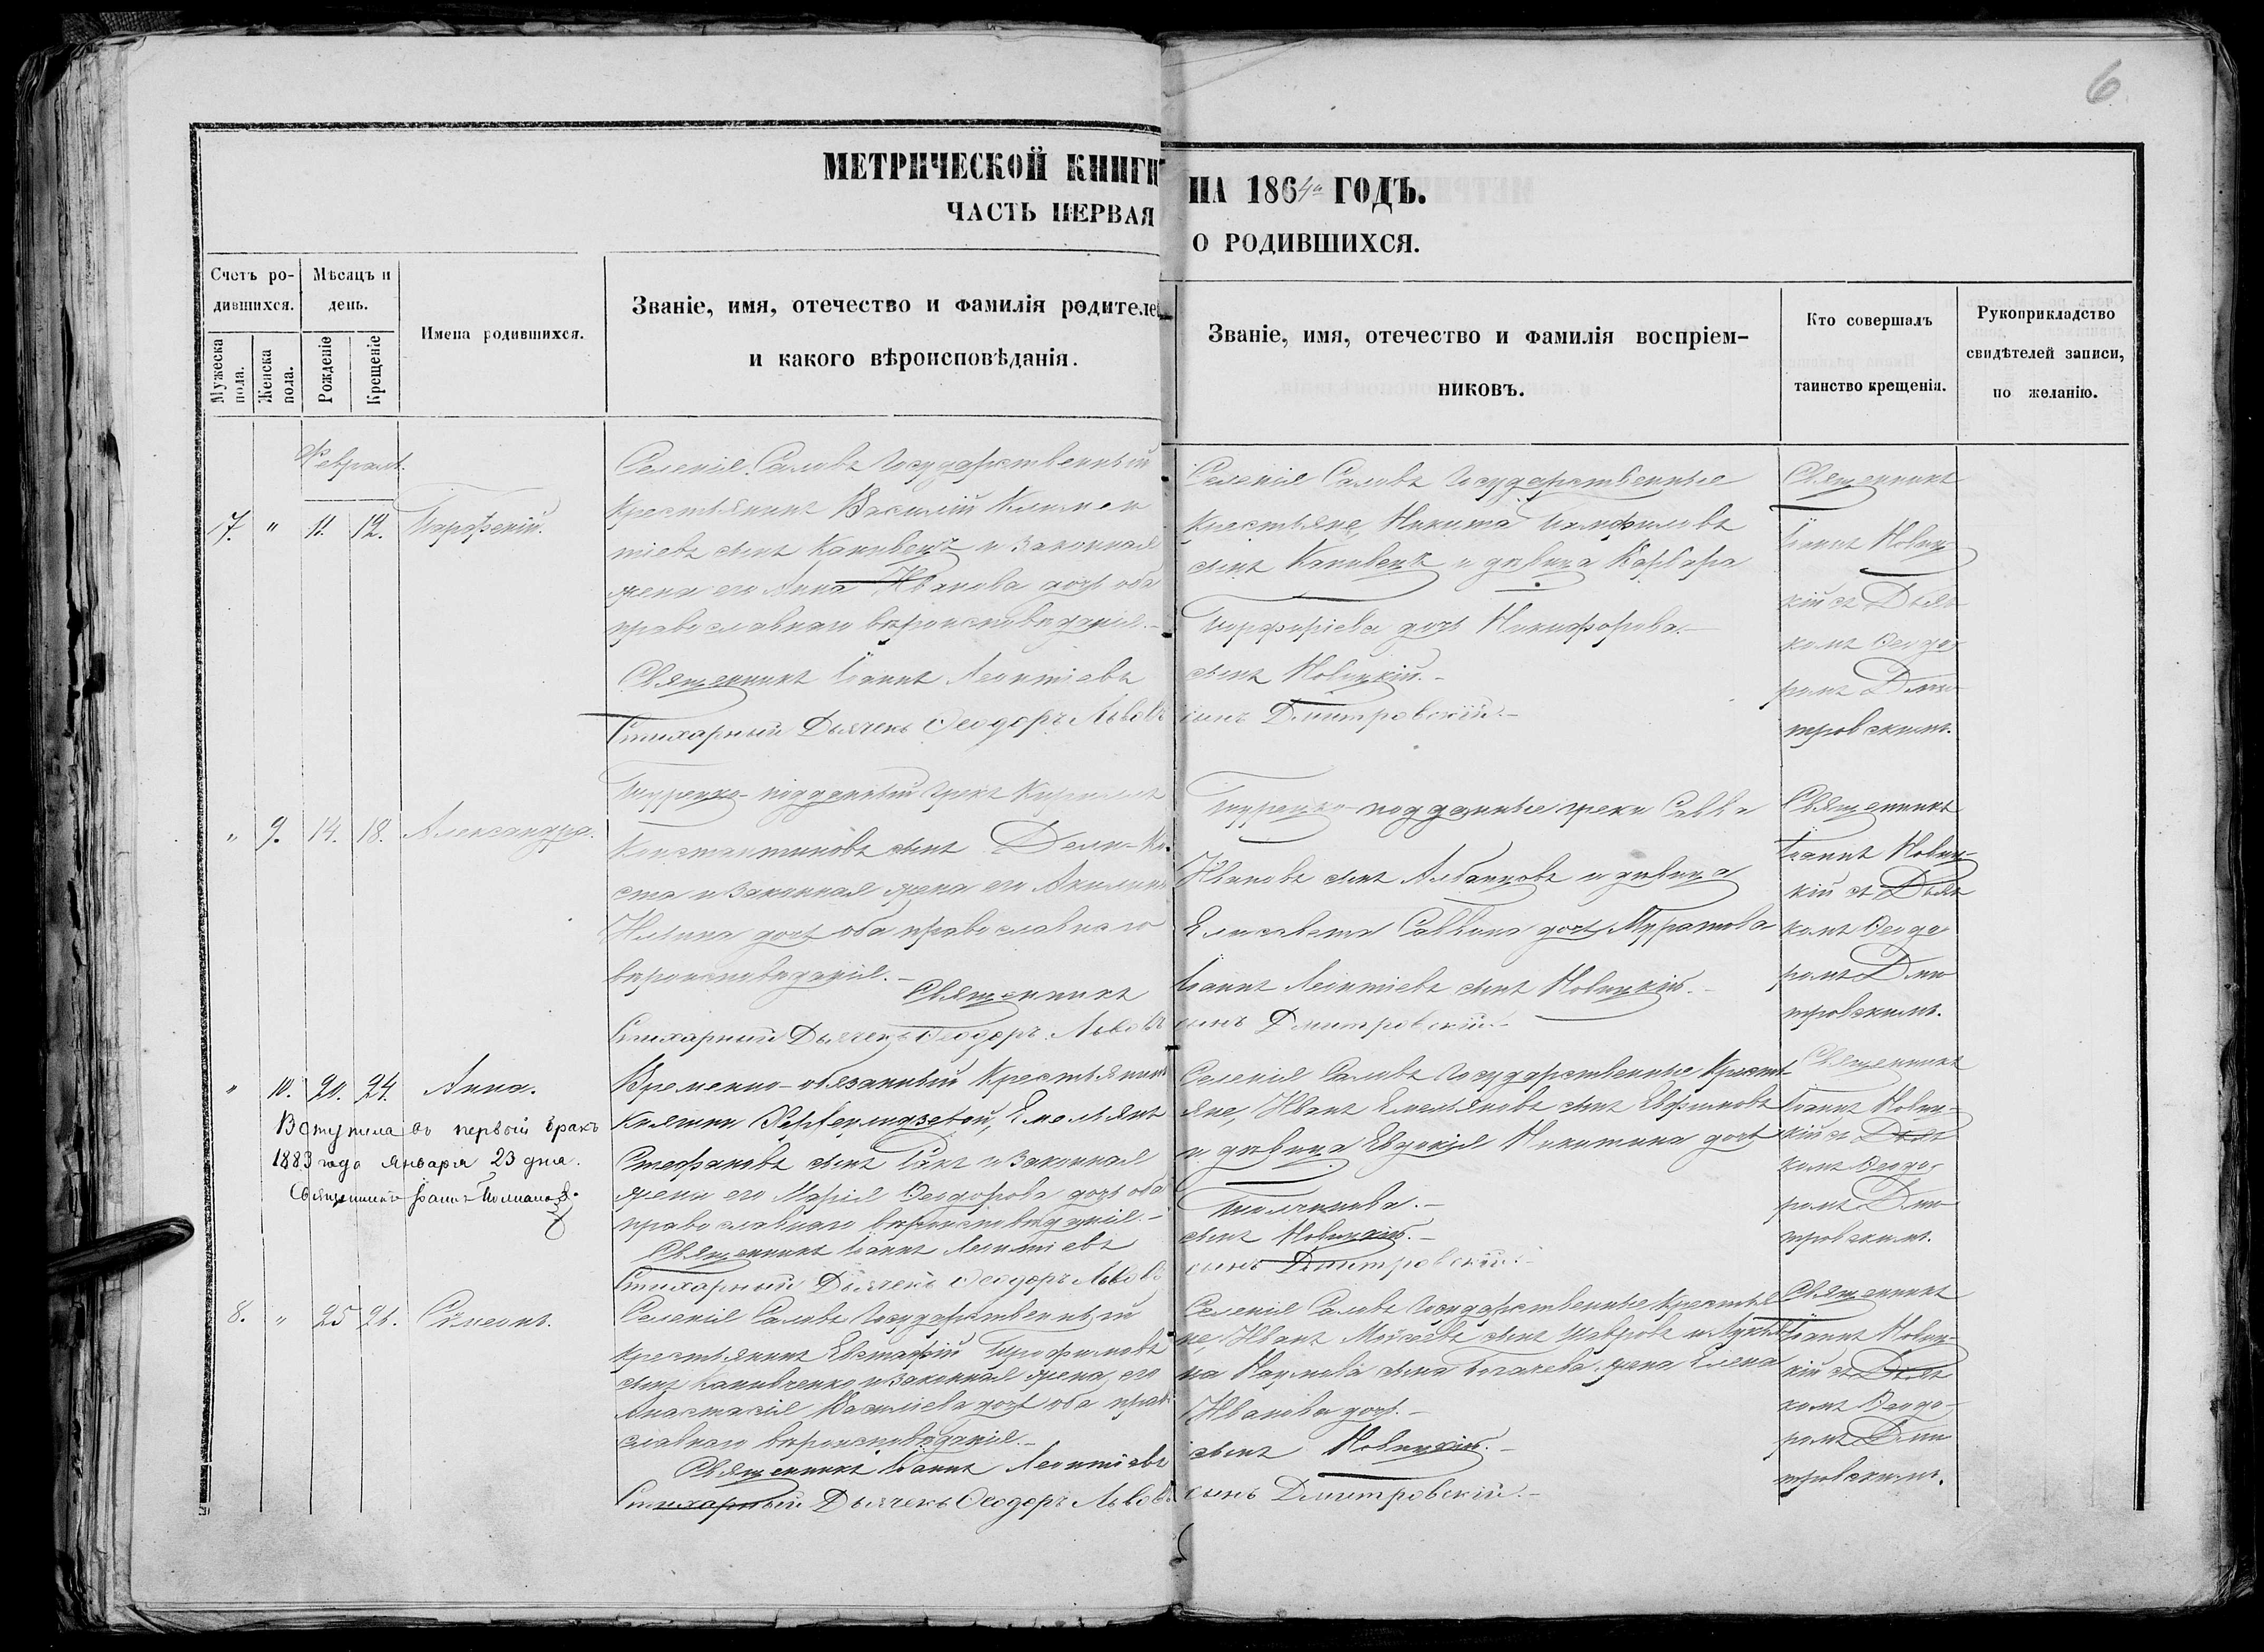 6
МЕТРИЧЕСКОЙ КНИГИ
НА 1864й ГОДЪ.
ЧАСТЬ ПЕРВАЯ
О РОДИВШИХСЯ.
Счетъ ро-
дившихся.
Мужеска пола.
Женска пола.
Мѣсяцъ и
день.
Рожденіе
Крещеніе
Имена родившихся.
Званіе, имя, отечество и фамилія родителей
и какого вѣроисповѣданія.
Званіе, имя, отечество и фамилія воспріем-
никовъ.
Кто совершалъ
таинство крещенія.
Рукоприкладство
свидѣтелей записи,
по желанію.
Февраль.
7. " 11. 12. Парфеній.
Селенія Государственный
крестьянинъ Василій Климен
тіевъ сынъ Канивецъ и законная
жена его Анна Иванова дочь оба
православнаго вѣроисповѣданія.-
Священникъ Іоаннъ Леонтіевъ
Стихарный Дьячекъ Ѳеодоръ Львовъ
Селенія Государственные
крестьяне, Никита Памфиловъ
сынъ Канивецъ и дѣвица Варвара
Порфиріева дочь Никифорова.-
сынъ Новицкій.-
сынъ Дмитровскій.-
Священникъ
Іоаннъ Новиц-
кій съ Дьяч-
комъ Ѳеодо-
ромъ Дми-
тровскимъ.
" 9. 14. 18. Александра.
Турецко-подданный грекъ Кириллъ
Константиновъ сынъ Дели-Ко
ста и законная жена его Акилина
Ильина дочь оба православнаго
вѣроисповѣданія.-
Священникъ
Стихарный Дьячекъ Ѳеодоръ Львовъ
Турецко-подданные греки Савва
Ивановъ сынъ и дѣвица
Елисавета Саввина дочь Муратова
Іоаннъ Леонтіевъ сынъ Новицкій.-
сынъ Дмитровскій.-
Священникъ
Іоаннъ Новиц-
кій съ Дьяч
комъ Ѳеодо
ромъ Дми
тровскимъ.
" 10. 20. 24. Анна.
Вступила въ первый бракъ
1883 года Января 23 дня.
Священникъ Іоаннъ
Временно-обязанный Крестьянинъ
Княгини Емельянъ
Стефановъ сынъ и законная
жена его Марія Ѳеодорова дочь оба
православнаго вѣроисповѣданія.-
Священникъ Іоаннъ Леонтіевъ
Стихарный Дьячекъ Ѳеодоръ Львовъ
Селенія Государственные Кресть
яне, Иванъ Емельяновъ сынъ Евфимовъ
и дѣвица Евдокія Никитина дочь
сынъ Новицкій.-
сынъ Дмитровскій.-
Священникъ
Іоаннъ Новиц-
кій съ Дьяч
комъ Ѳеодо-
ромъ Дми
тровскимъ.
8. " 25 26. Сѵмеонъ.
Селенія Государственный
крестьянинъ Евстафій Трофимовъ
сынъ Канивченко и законная жена его
Анастасія Василіева дочь оба право
славнаго вѣроисповѣданія.-
Священникъ Іоаннъ Леонтіевъ
Стихарный Дьячекъ Ѳеодоръ Львовъ
Селенія Государственные Крестья
не, Иванъ Моисеевъ сынъ и
Наумова сына жена Елена
Иванова дочь.-
сынъ Новицкій.-
сынъ Дмитровскій.-
Священникъ
Іоаннъ Новиц-
кій съ Дьяч
комъ Ѳеодо-
ромъ Дми
тровскимъ.